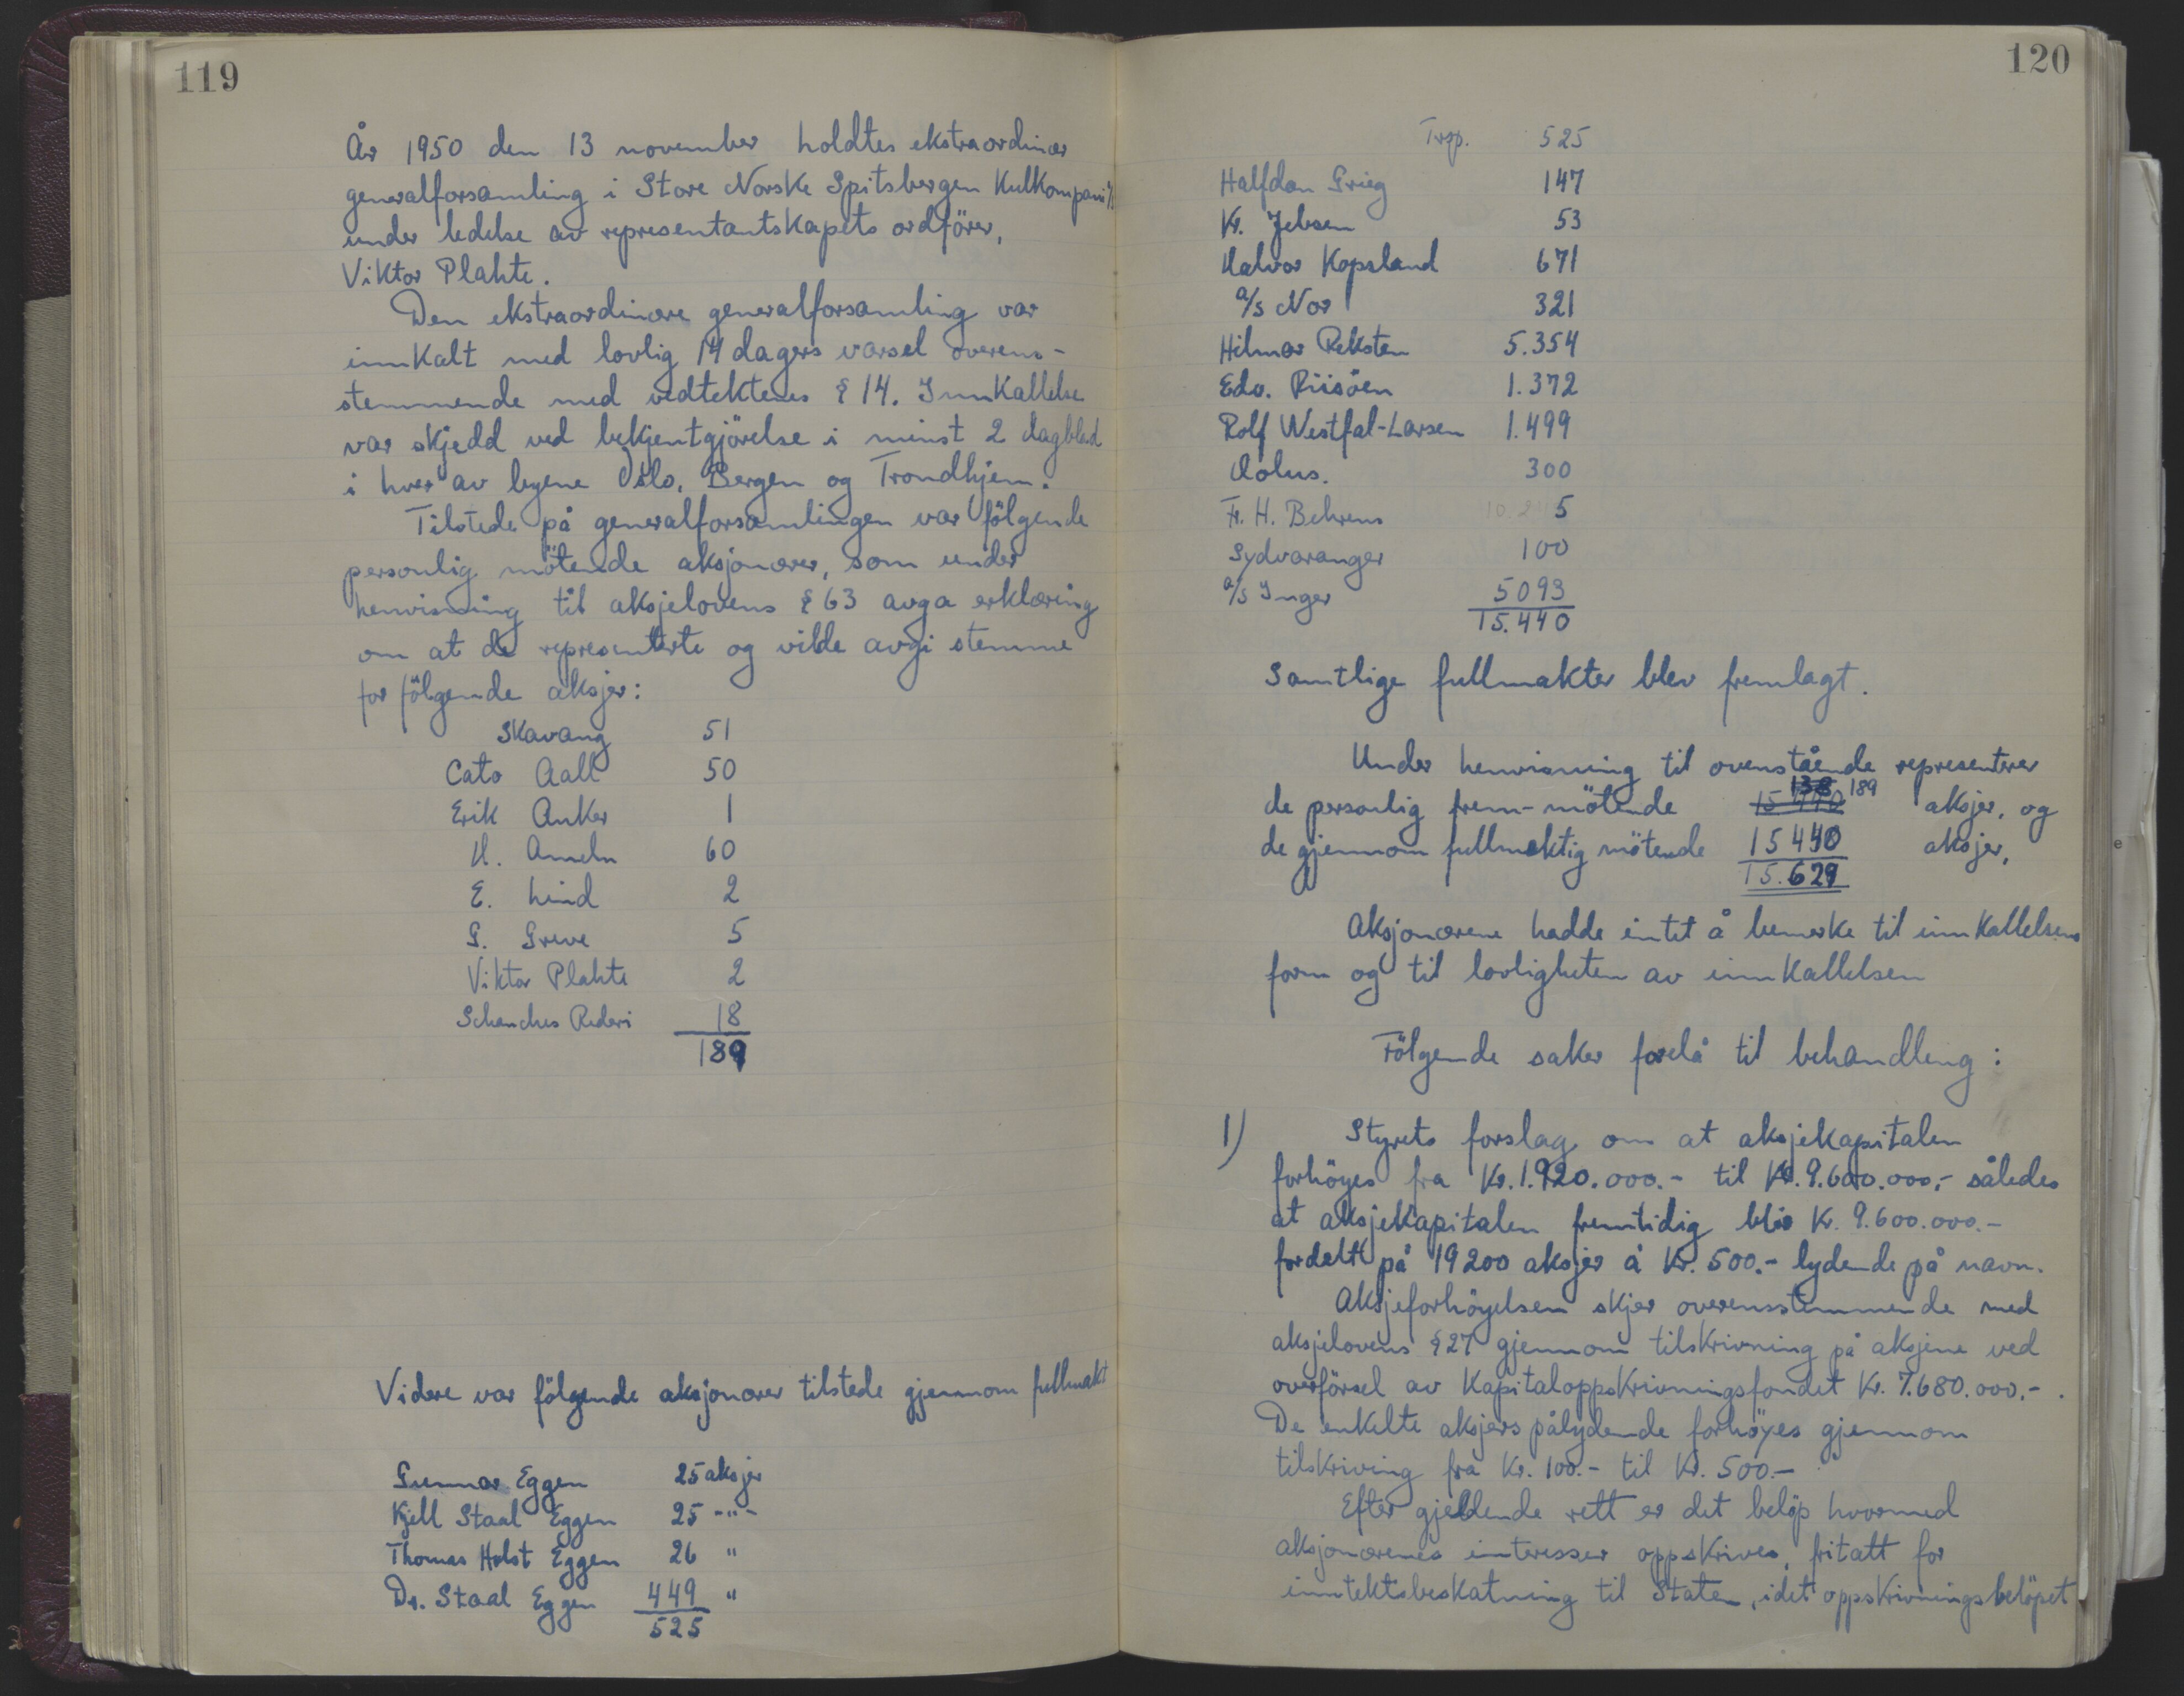 119
År 1950 den 13 november holdtes ekstraordinær
generalforsamling i Store Norske Spitsbergen Kulkompani
under ledelse av representantskapets ordförer,
Viktor Plahte.
Den ekstraordinære generalforsamling var
innkalt med lovlig 14 dagers varsel overens-
stemmende med vedtektenes § 14. Innkallelse
var skjedd ved bekjentgjörelse i minst 2 dagblad
i hver av byene Oslo, Bergen og Trondhjem.
Tilstede på generalforsamlingen var fölgende
personlig mötende aksjonærer, som under
henvisning til aksjelovens § 63 avga erklæring
om at de representerte og vilde avgi stemme
for fölgende aksjer:
Skavang 51
Cato Aall 50
Erik Anker 1
H. Ameln 60
E. Lind 2
G. Greve 5
Viktor Plahte 2
Schanches Rederi 18
189
Videre var fölgende aksjonærer tilstede gjennom fullmakt
Gunnar Eggen 25 aksjer
Kjell Staal Eggen 25 -"-
Thomas Holst Eggen 26 "
Dr. Staal Eggen 449 "
525
120
Trsp. 525
Halfdan Grieg 147
Kr. Jebsen 53
Halvor Kopsland 671
a/s Nor 321
Hilmar Reksten 5.354
Edv. Riisöen 1.372
Rolf Westfal-Larsen 1.499
Aolus. 300
Fr. H. Behrens 5
Sydvaranger 100
a/s Inger 5093
15.440
Samtlige fullmakter blev fremlagt.
Under henvisning til ovenstående representerer
138 189
de personlig frem-mötende 15440 aksjer, og
de gjennom fullmektig mötende 15440 aksjer,
15.629
Aksjonærene hadde intet å bemerke til innkallelsens
form og til lovligheten av innkallelsen
Fölgende saker forelå til behandling:
1) Styrets forslag om at aksjekapitalen
forhöyes fra Kr. 1.920.000.- til Kr. 9.600.000,- således
at aksjekapitalen fremtidig blir Kr. 9.600.000.-
fordelt på 19200 aksjer à Kr. 500.- lydende på navn.
Aksjeforhöyelsen skjer overensstemmende med
aksjelovens § 27 gjennom tilskrivning på aksjene ved
overförsel av Kapitaloppskrivningsfondet Kr. 7.680.000,-.
De enkelte aksjers pålydende forhöyes gjennom
tilskriving fra Kr. 100.- til Kr. 500.-
Efter gjeldende rett er det belöp hvormed
aksjonærenes interesser oppskrives, fritatt for
inntektsbeskatning til Staten, idet oppskrivningsbelöpet